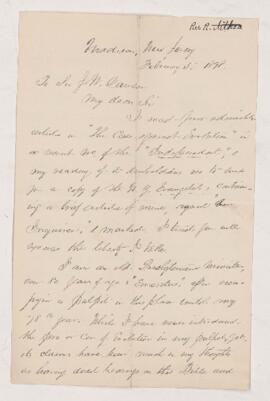 Rev R. Aikman
Madison, New Jersey
February 5, 189
To Sir J. W. Dawson
My dear Sir
I read your admirable
article in "The Case against Evolution" in
a recent no of the "Independent", &
my reading of it has me to
for a copy of the N. Y. Evangelist, contain-
ing a brief article of mine, against
" & marked. I trust you will
excuse the liberty I take.
I am an old Presbyterian Minister,
over 80 years of age & "Emeritus", after occu-
pying a pulpit in this place until my
78th year. While I have never introduced
the pro or con of Evolution in my pulpit, yet
its claims have been much in my thoughts
as having direct bearings on the Bible and